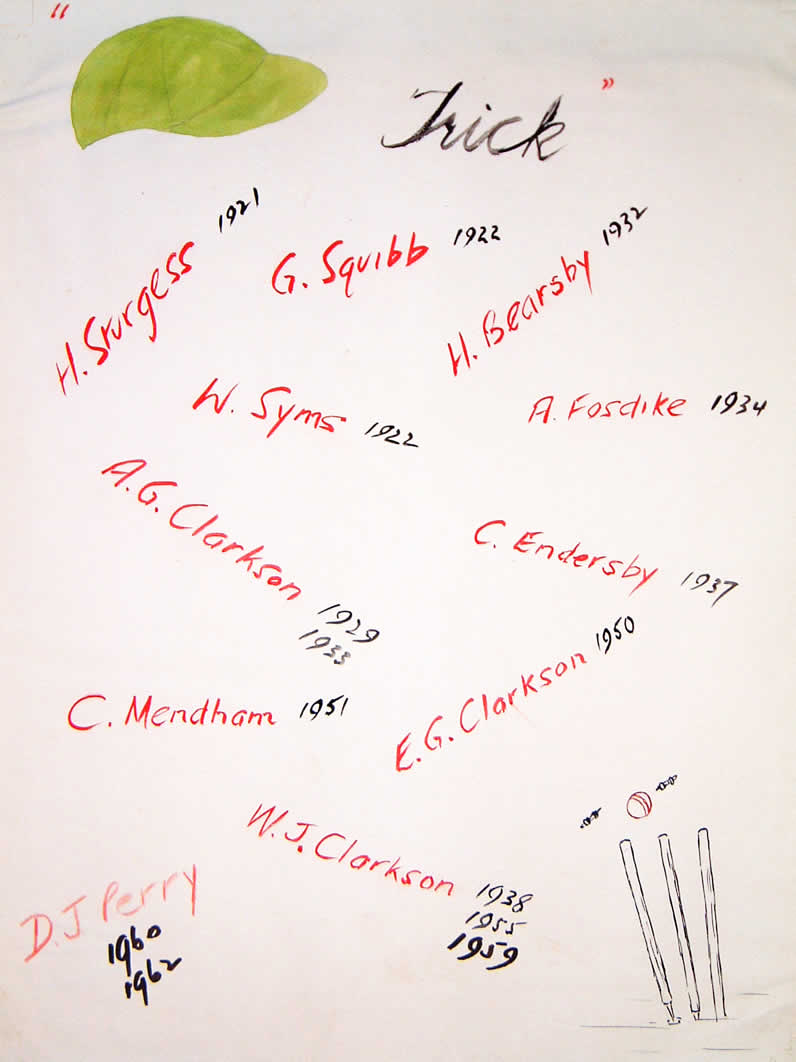 “ Trick ”
H. Sturgess 1921
G. Squibb 1922
H. Bearsby 1932
W. Syms 1922
A. Fosdike 1934
A.G. Clarkson 1929
1933
C. Endersby 1937
E.G. Clarkson 1950
C. Mendham 1951
W.J. Clarkson 1938
1955
1959
D.J Perry
1960
1962